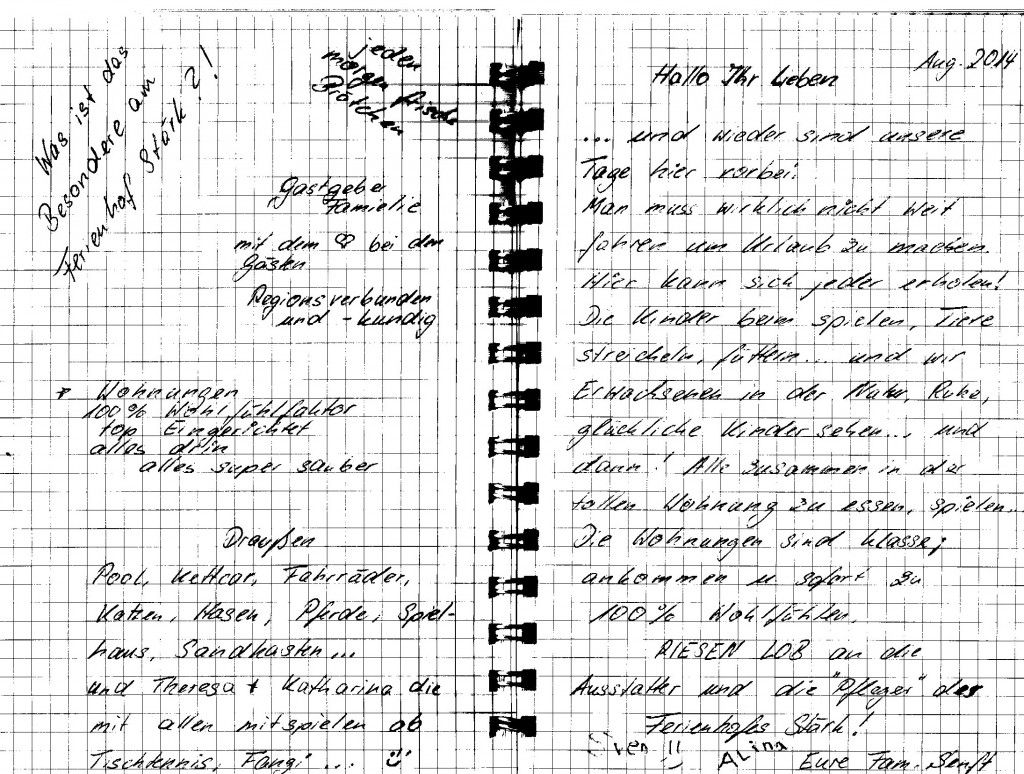 Was ist das
Besondere am
Ferienhof Stärk?!
jeden
morgen frische
Brötchen
Gastgeber
Famielie
mit dem ♡ bei den
Gästen
Regionsverbunden
und -kundig
* Wohnungen
100% Wohlfühlfaktor
top Eingerichtet
alles drin
alles super sauber
Draußen
Pool, Kettcar, Fahrräder,
Katzen, Hasen, Pferde, Spiel-
haus, Sandkasten...
und Theresa + Katharina die
mit allen mitspielen ob
Tischtennis, Fangi ... :)
Aug. 2014
Hallo Ihr Lieben
... und wieder sind unsere
Tage hier vorbei.
Man muss wirklich nicht weit
fahren um Urlaub zu machen.
Hier kann sich jeder erholen!
Die Kinder beim spielen, Tiere
streicheln, füttern... und wir
Erwachsenen in der Natur, Ruhe,
glückliche Kinder sehen... und
dann! Alle zusammen in der
tollen Wohnung zu essen, spielen...
Die Wohnungen sind klasse;
ankommen u. sofort zu
100% Wohlfühlen.
RIESEN LOB an die
Ausstatter und die "Pfleger" des
Ferienhofes Stärk!
Sven !! ALina
Eure Fam. Senft